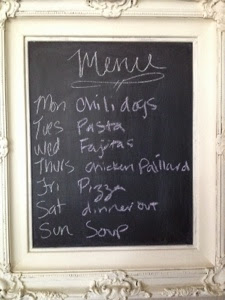 Menu
Mon Chili dogs
Tues Pasta
Wed Fajitas
Thurs Chicken Paillard
Fri Pizza
Sat dinner out
Sun Soup